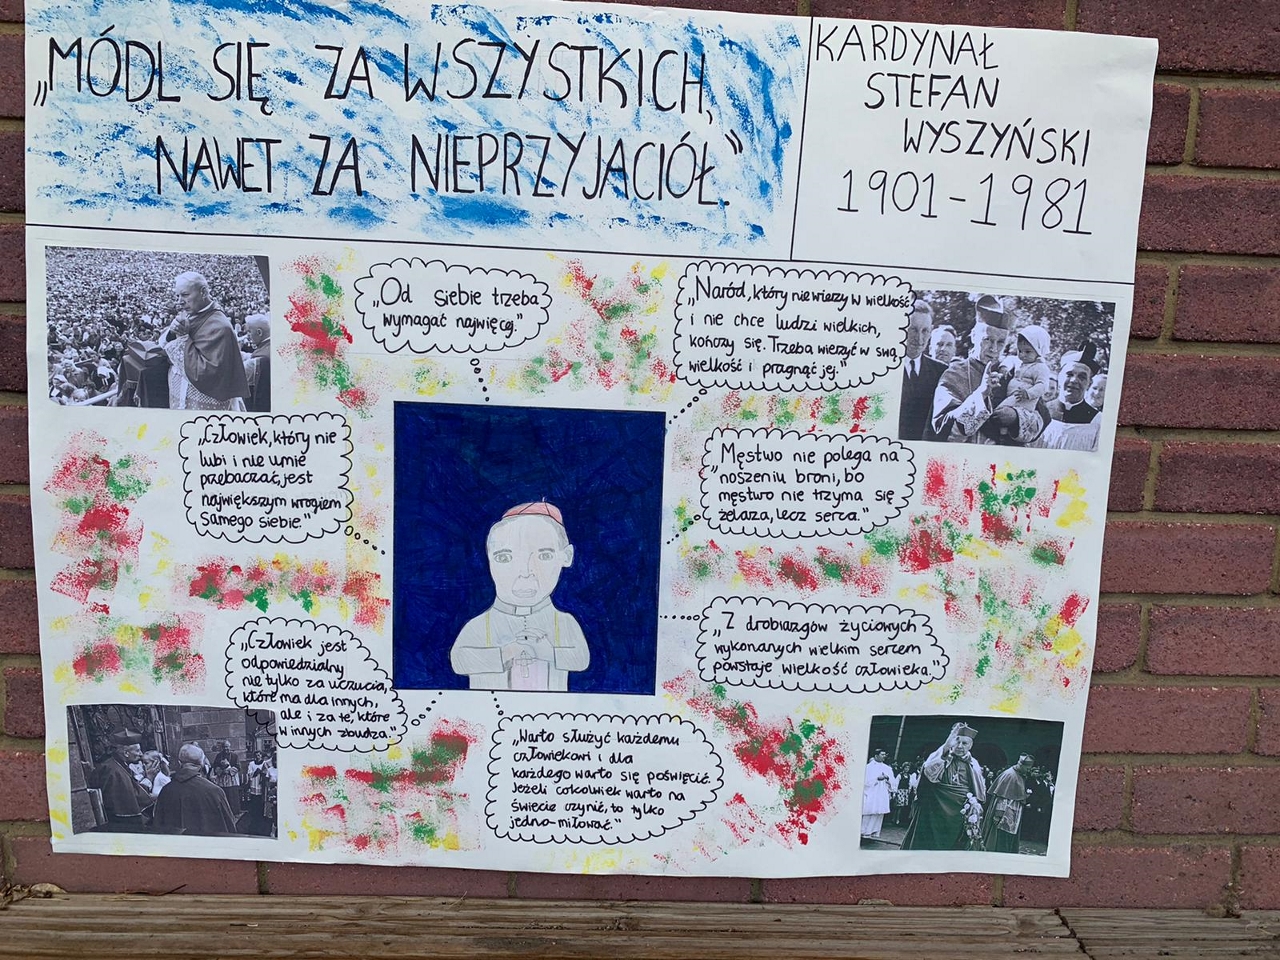 „MÓDL SIĘ ZA WSZYSTKICH,
NAWET ZA NIEPRZYJACIÓŁ.”
KARDYNAŁ
STEFAN
WYSZYŃSKI
1901-1981
„Od siebie trzeba
wymagać najwięcej.”
„Naród, który nie wierzy w wielkość
i nie chce ludzi wielkich,
kończy się. Trzeba wierzyć w swą
wielkość i pragnąć jej.”
„Człowiek, który nie
lubi i nie umie
przebaczać, jest
największym wrogiem
samego siebie.”
„Męstwo nie polega na
noszeniu broni, bo
męstwo nie trzyma się
żelaza, lecz serca.”
„Człowiek jest
odpowiedzialny
nie tylko za uczucia,
które ma dla innych,
ale i za te, które
w innych zbudza.”
„Z drobiazgów życiowych
wykonanych wielkim sercem
powstaje wielkość człowieka.”
„Warto służyć każdemu
człowiekowi i dla
każdego warto się poświęcić.
Jeżeli cokolwiek warto na
świecie czynić, to tylko
jedno-miłować.”